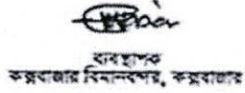 ব্যবস্থাপক
কক্সবাজার বিমানবন্দর, কক্সবাজার